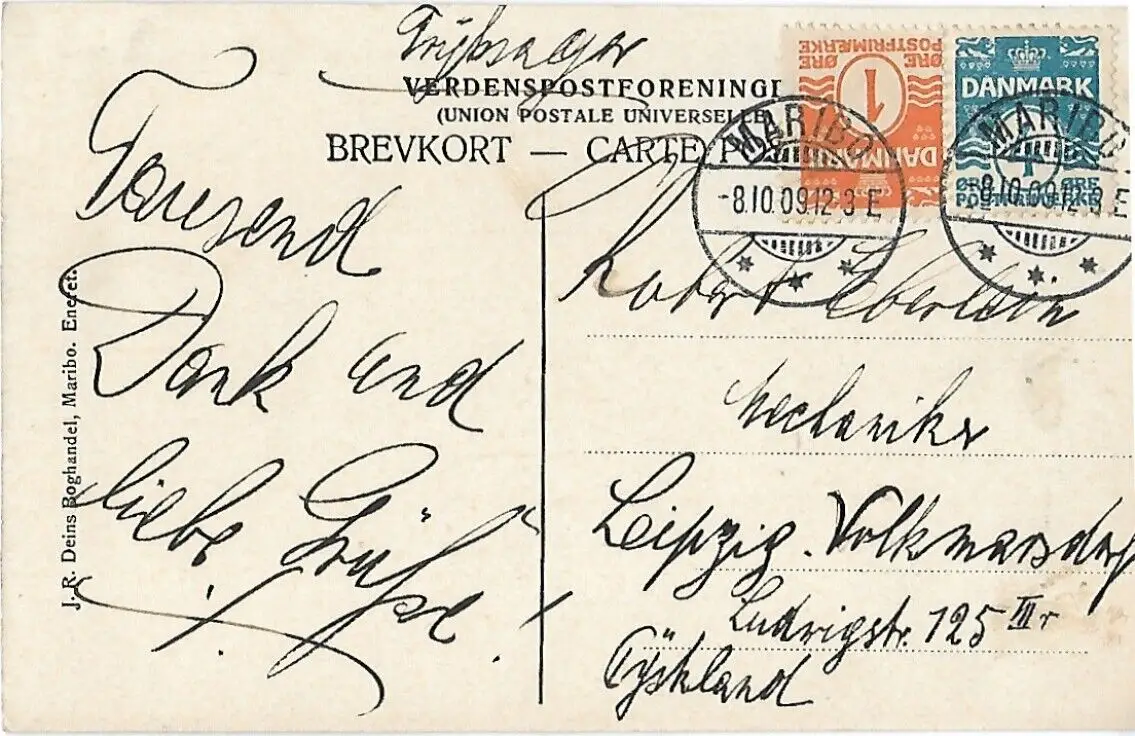 VERDENSPOSTFORENINGE
(UNION POSTALE UNIVERSELLE)
BREVKORT — CARTE PO
1
ØRE
ØRE
POSTFRIMÆRKE
DANMARK
DANMARK
4
ØRE
ØRE
POSTFRIMÆRKE
MARIBO
-8.10.09.12-3 E
MARIBO
-8.10.09.12-3 E
Tausend
Dank und
liebe Grüße!
J. R. Deins Boghandel, Maribo. Eneret.
Robert Eberlein
Mechaniker
Leipzig-Volkmarsdorf
Ludwigstr. 125 III r
Tyskland